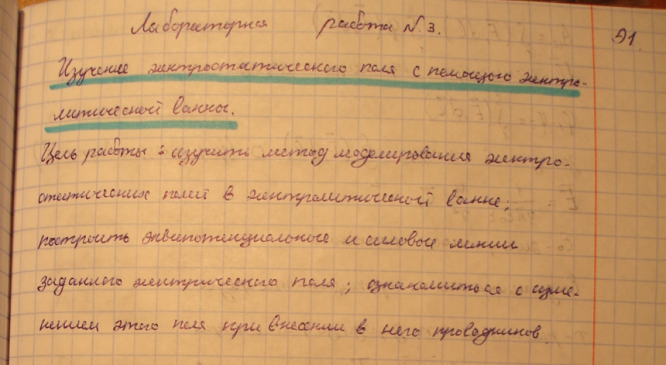 Лабораторная работа №3.
91.
Изучение электростатического поля с помощью электро-
литической ванны.
Цель работы: изучить метод моделирования электро-
статических полей в электролитической ванне;
построить эквипотенциальные и силовые линии
заданного электрического поля; ознакомиться с изме-
нением этого поля при внесении в него проводников